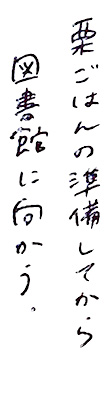 栗ごはんの準備してから
図書館に向かう。